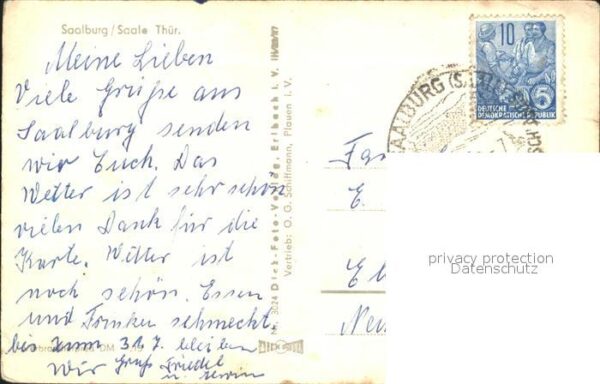 Saalburg / Saale Thür.
Meine Lieben
Viele Grüße aus
Saalburg senden
wir Euch. Das
Wetter ist sehr schön
vielen Dank für die
Karte. Wetter ist
noch schön. Essen
und Trinken schmeckt
bis zum 31.7. bleiben
Wir Gruß Friedel
u. Erwin
Nr. 3024 Dick-Foto-Verlag, Erlbach i. V.
Vertrieb: O. G. Schiffmann, Plauen i. V.
10
5
DEUTSCHE
DEMOKRATISCHE REPUBLIK
SAALBURG (SAALE)
Fam
E.
El
privacy protection
Datenschutz